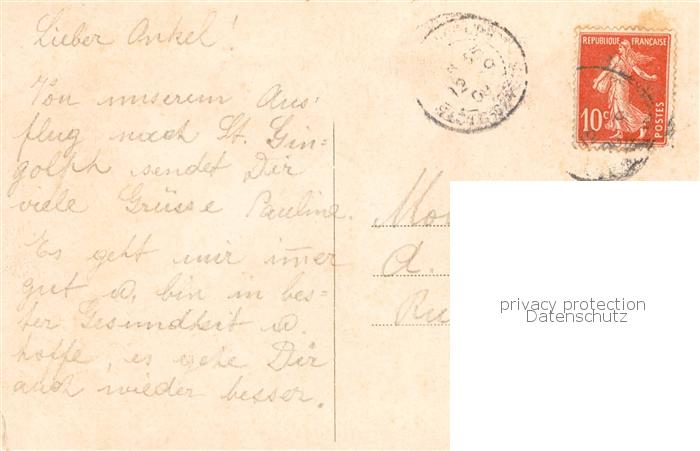 Lieber Onkel!
Von unserem Aus=
flug nach St. Gin=
golph sendet Dir
viele Grüsse Pauline.
Es geht mir im̅er
gut u. bin in bes=
ter Gesundheit u.
hoffe, es gehe Dir
auch wieder besser.
REPUBLIQUE FRANÇAISE
10c
POSTES
A.
privacy protection
Datenschutz